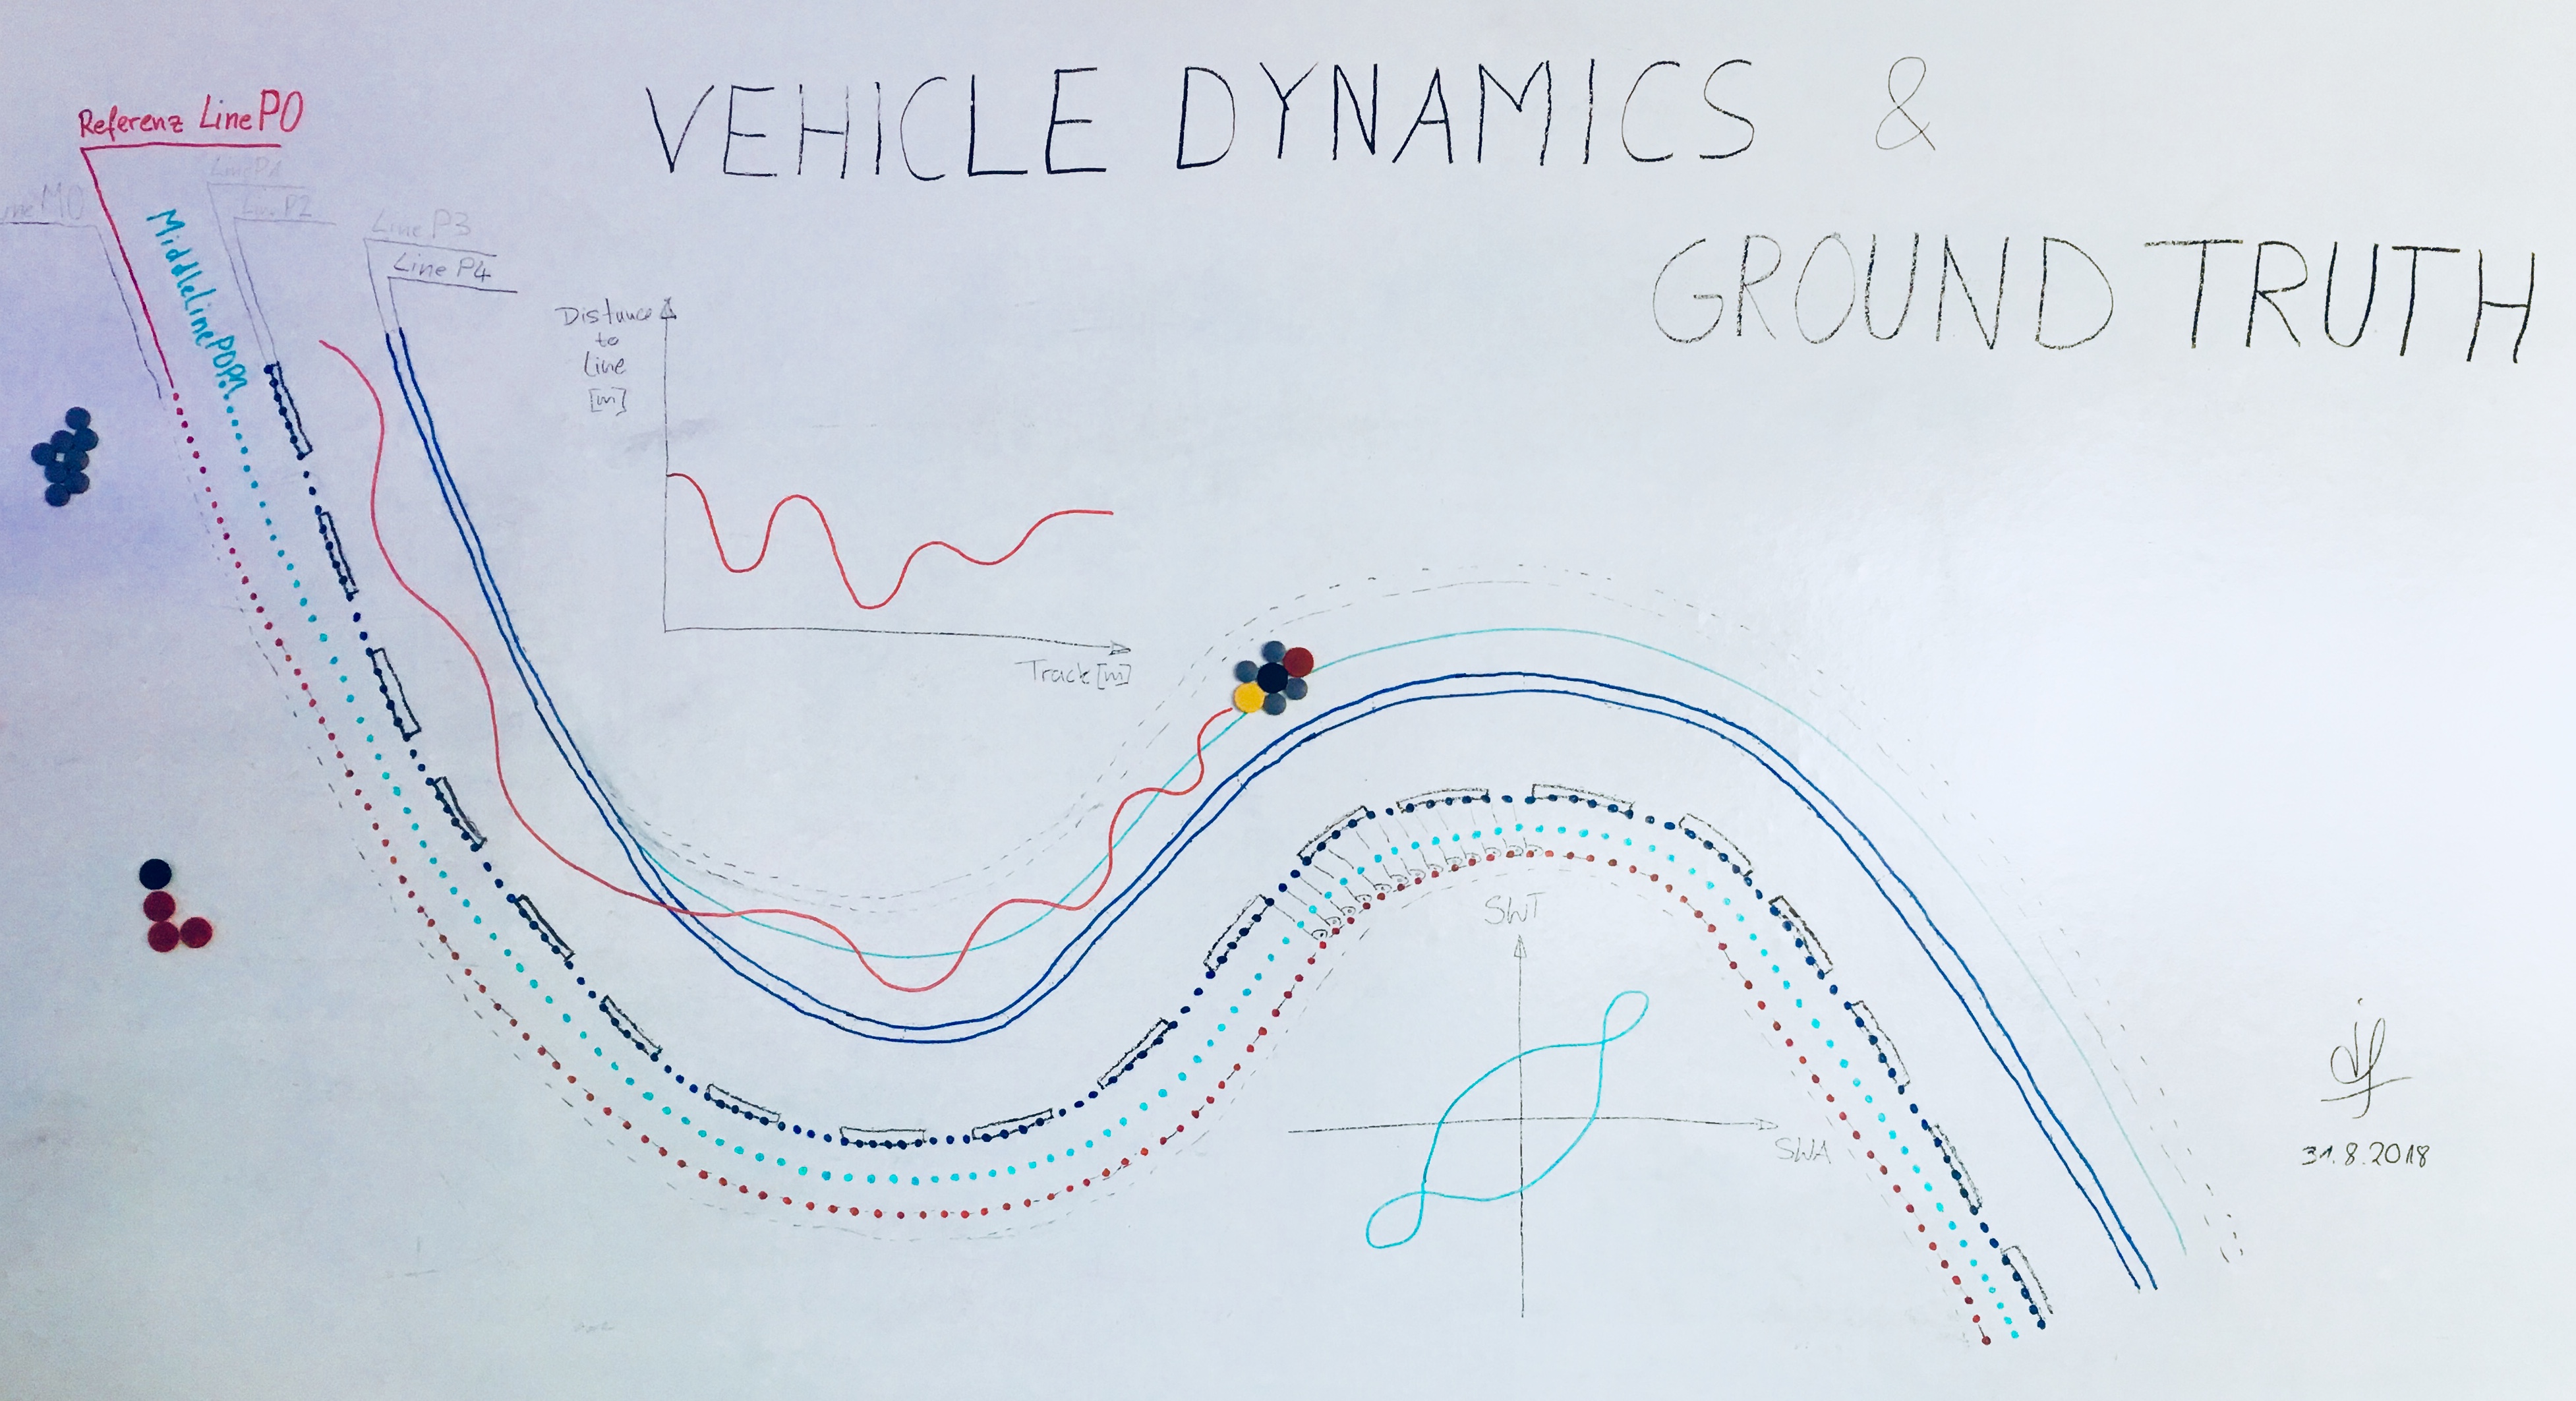 VEHICLE DYNAMICS &
GROUND TRUTH
Referenz LineP0
LineP1
LineM0
LineP2
LineP3
LineP4
MiddleLineP0P1
Distance
to
Line
[m]
Track [m]
SWT
SWA
31.8.2018